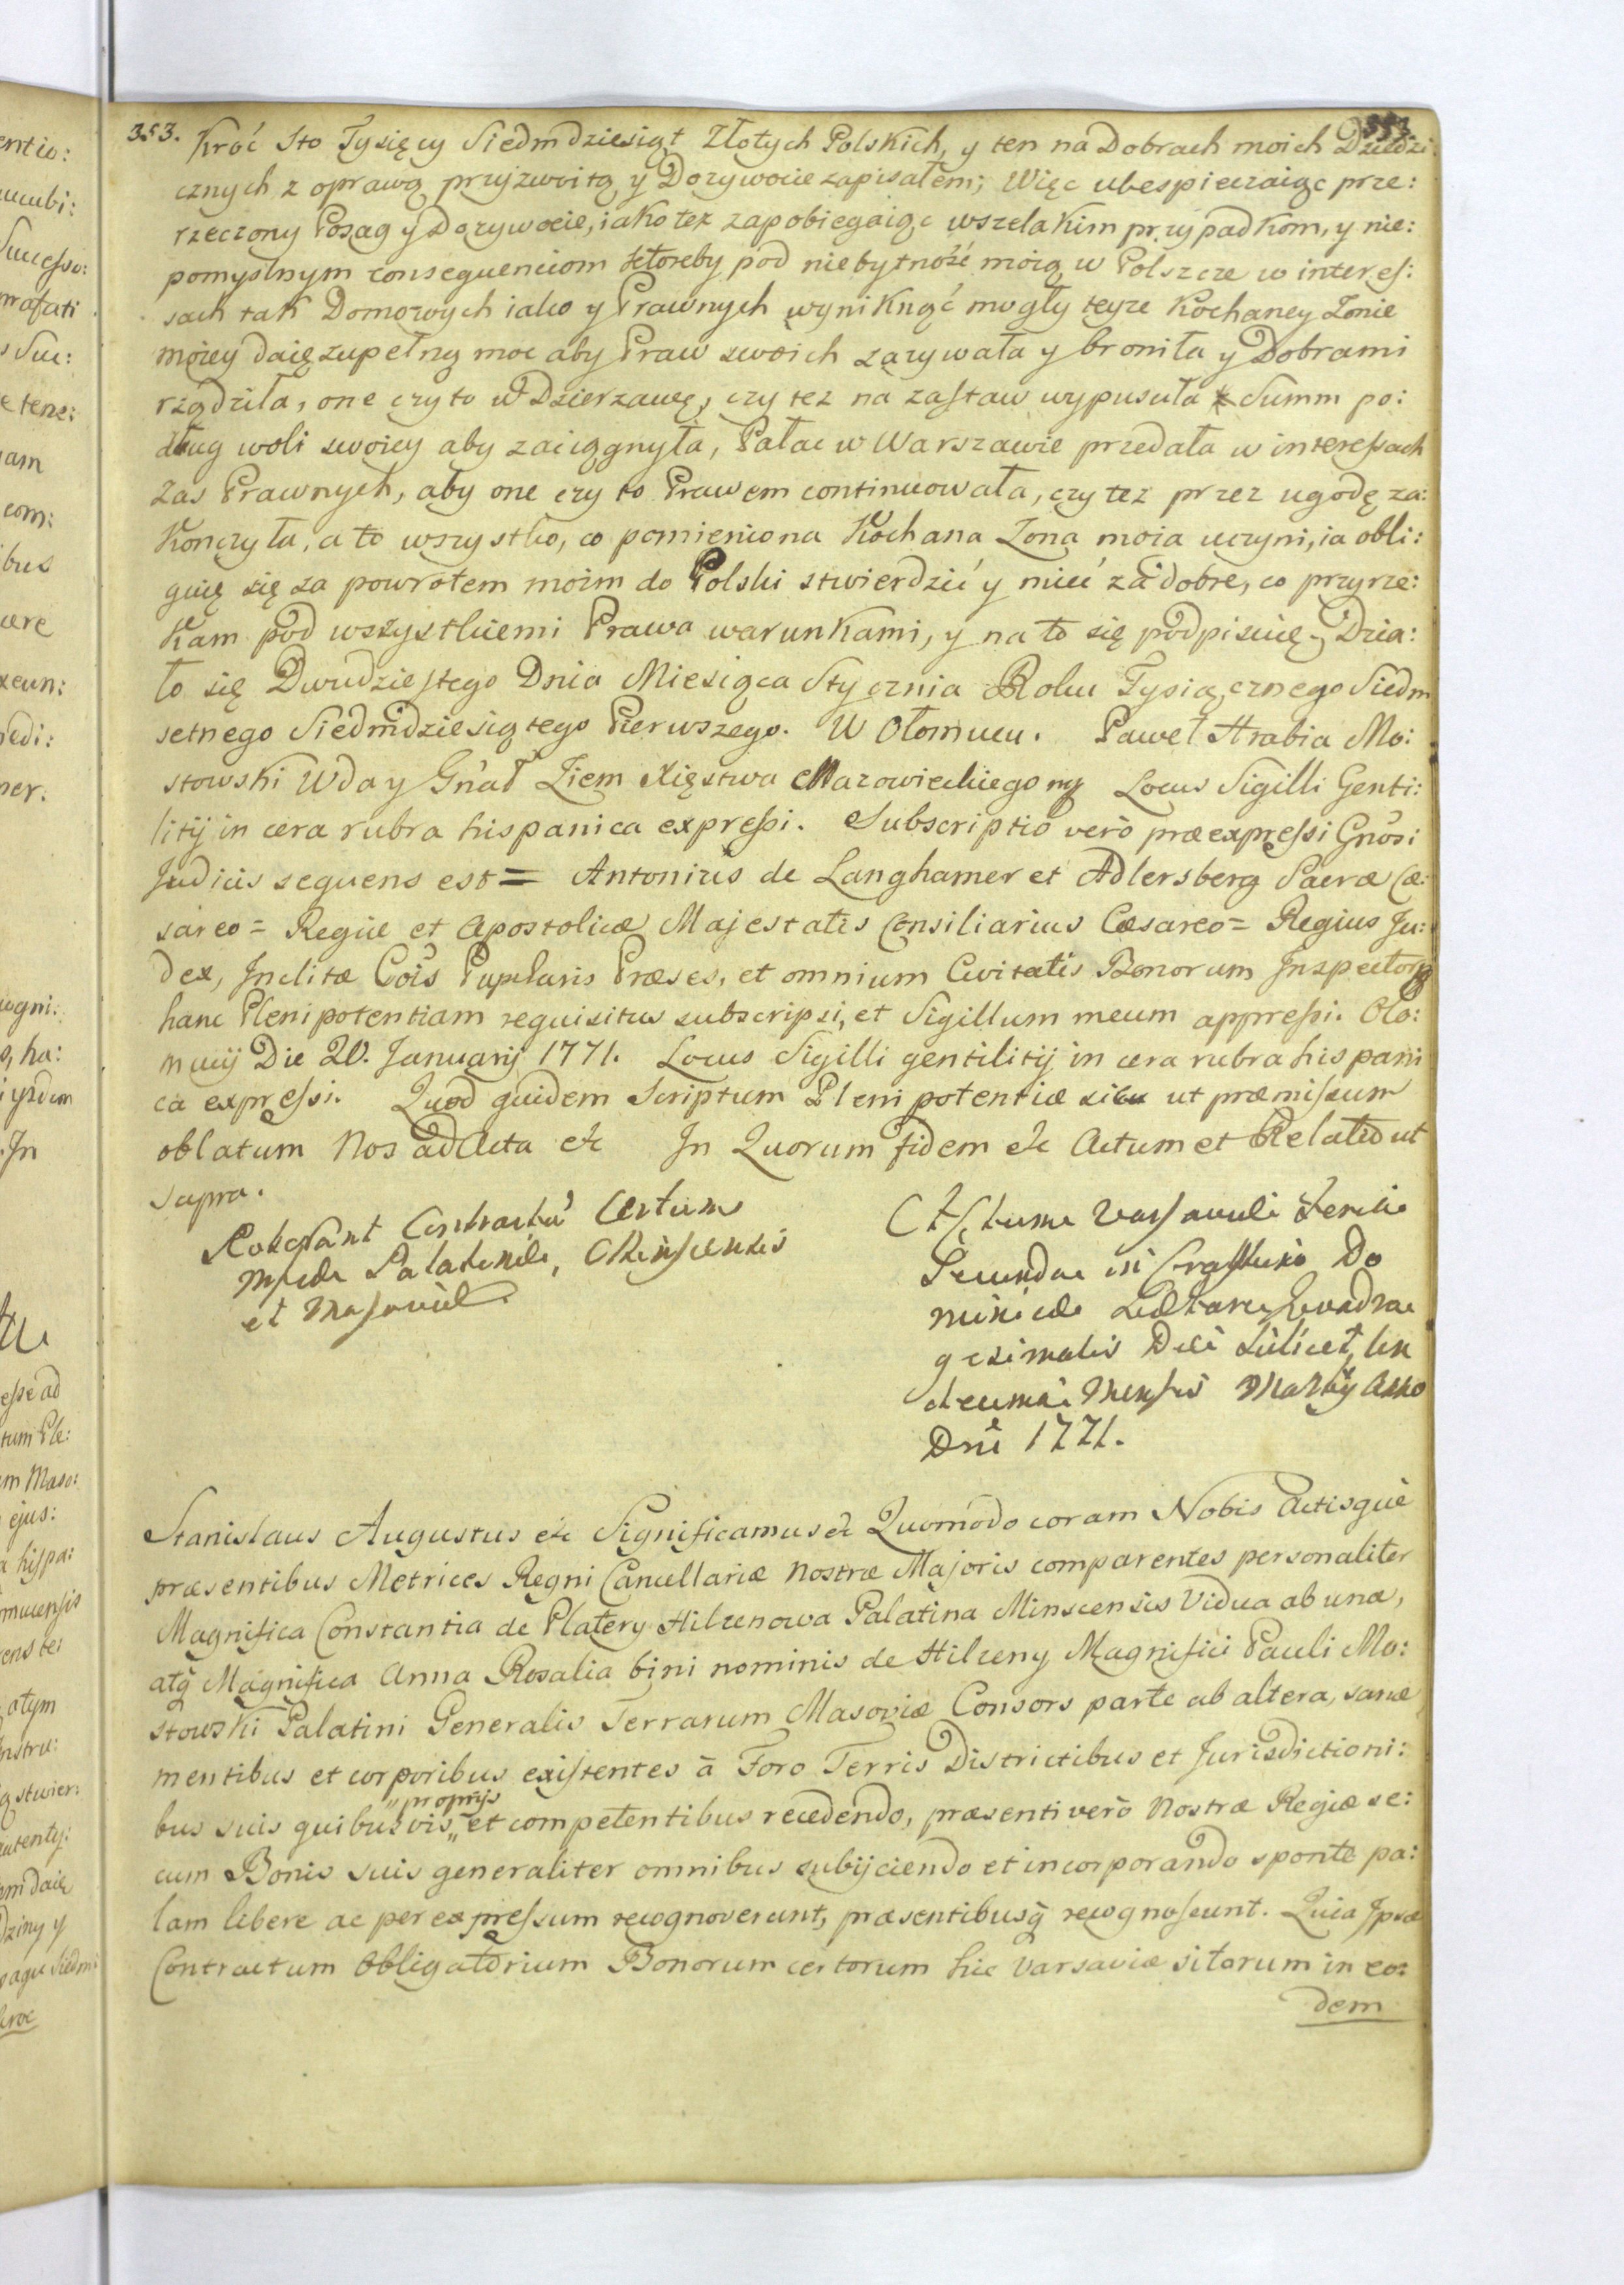 353. Króć Sto Tysięcy Siedmdziesiąt Złotych Polskich, y ten na Dobrach moich Dziedzi: 353.
cznych z oprawą przyzwoitą y Dozywocie zapisałem; Więc ubespieczaiąc prze:
rzeczony Posag y Dozywocie, iako tez zapobiegaiąc wszelakim przypadkom, y nie:
pomyslnym consequenciom ktoreby pod niebytność moią w Polszcze w interes:
sach tak Domowych iako y Prawnych wyniknąć mogły teyze Kochaney Zonie
moiey daię zupełną moc aby Praw swoich zazywała y broniła y Dobrami
rządziła, one czy to w Dzierzawę, czy tez na zastaw wypusciła Summ po:
dług woli swoiey aby zaciągnyła, Pałac w Warszawie przedała w interessach
zas Prawnych, aby one czy to Prawem continuowała, czy tez przez ugodę za:
kończyła, a to wszystko, co pomieniona Kochana Zona moia uczyni, ia obli:
guię się za powrotem moim do Polski stwierdzić y mieć za dobre, co przyrze:
kam pod wszystkiemi Prawa warunkami, y na to się podpisuię. Dzia:
ło się Dwudziestego Dnia Miesiąca Stycznia Roku Tysiącznego Siedm
setnego Siedmdziesiątego Pierwszego. W Ołomucu. Paweł Hrabia Mo:
stowski Wda y Gnał Ziem Xięstwa Mazowieckiego mp Locus Sigilli Genti:
litij in cera rubra hispanica expressi. Subscriptio verò præexpressi Gnosi
Judicis sequens est = Antonius de Langhamer et Adlersberg Sacræ Cæ:
sareo = Regiæ et Apostolicæ Majestatis Consiliarius Cæsareo = Regius Ju:
dex, Inclitæ Cois Pupilaris Præses, et omnium Civitatis Bonorum Inspector
hanc Plenipotentiam requisitus subscripsi, et Sigillum meum appressi. Olo:
mucij Die 20. Januarij 1771. Locus Sigilli gentilitij in cera rubra hispani
ca expressi. Quod quidem Scriptum Plenipotentiæ ut præmissum
oblatum Nos ad Acta etc In Quorum fidem etc Actum et Relatio ut
supra.
Roborant Contractū Certum
Mficæ Palatinæ, Minscensis
et Masoviæ.
Actum Varsaviæ Feria
Secunda in Crastino Do
minicæ Lætare Quadra
gesimalis Die scilicet un
decima Mensis Martij Anno
Dni 1771.
Stanislaus Augustus etc Significamus etc Quomodo coram Nobis Actisque
præsentibus Metrices Regni Cancellariæ Nostræ Majoris comparentes personaliter
Magnifica Constantia de Platery Hilzenowa Palatina Minscensis Vidua ab una,
atq̄ Magnifica Anna Rosalia bini nominis de Hilzeny Magnifici Pauli Mo:
stowski Palatini Generalis Terrarum Masoviæ Consors parte ab altera, sanæ
mentibus et corporibus existentes à Foro Terris Districtibus et Jurisdictioni:
"proprijs
bus suis quibusvis " et competentibus recedendo, præsenti verò Nostræ Regiæ se:
cum Bonis suis generaliter omnibus subijciendo et incorporando sponte pa:
lam libere ac per expressum recognoverunt, præsentibusq̄ recognoscunt. Quia Ipsæ
Contractum Obligatorium Bonorum certorum hic Varsaviæ sitorum in eo:
dem